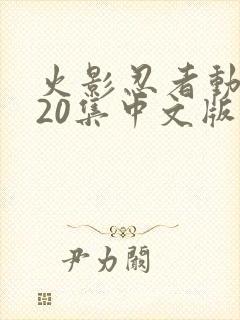 火影忍者動
20集中文版
尹力闕